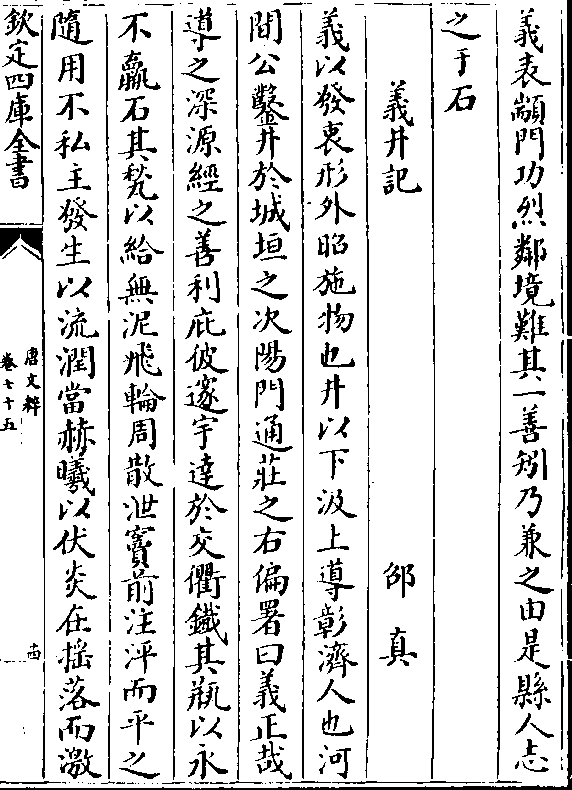 義表顓門功烈鄰境難其一善矧乃兼之由是縣人志
之于石
義井記 邵真
義以發衷形外昭施物也井以下汲上導彰濟人也河
間公鑿井於城垣之次陽門通莊之右偏署曰義正哉
導之深源經之善利庇彼邃宇達於交衢鐵其瓶以永
不羸石其甃以給無泥飛輪周散泄竇前注泙而平之
隨用不私主發生以流潤當赫曦以伏炎在揺落而激
欽定四庫全書
唐文粹
卷七十五
十四